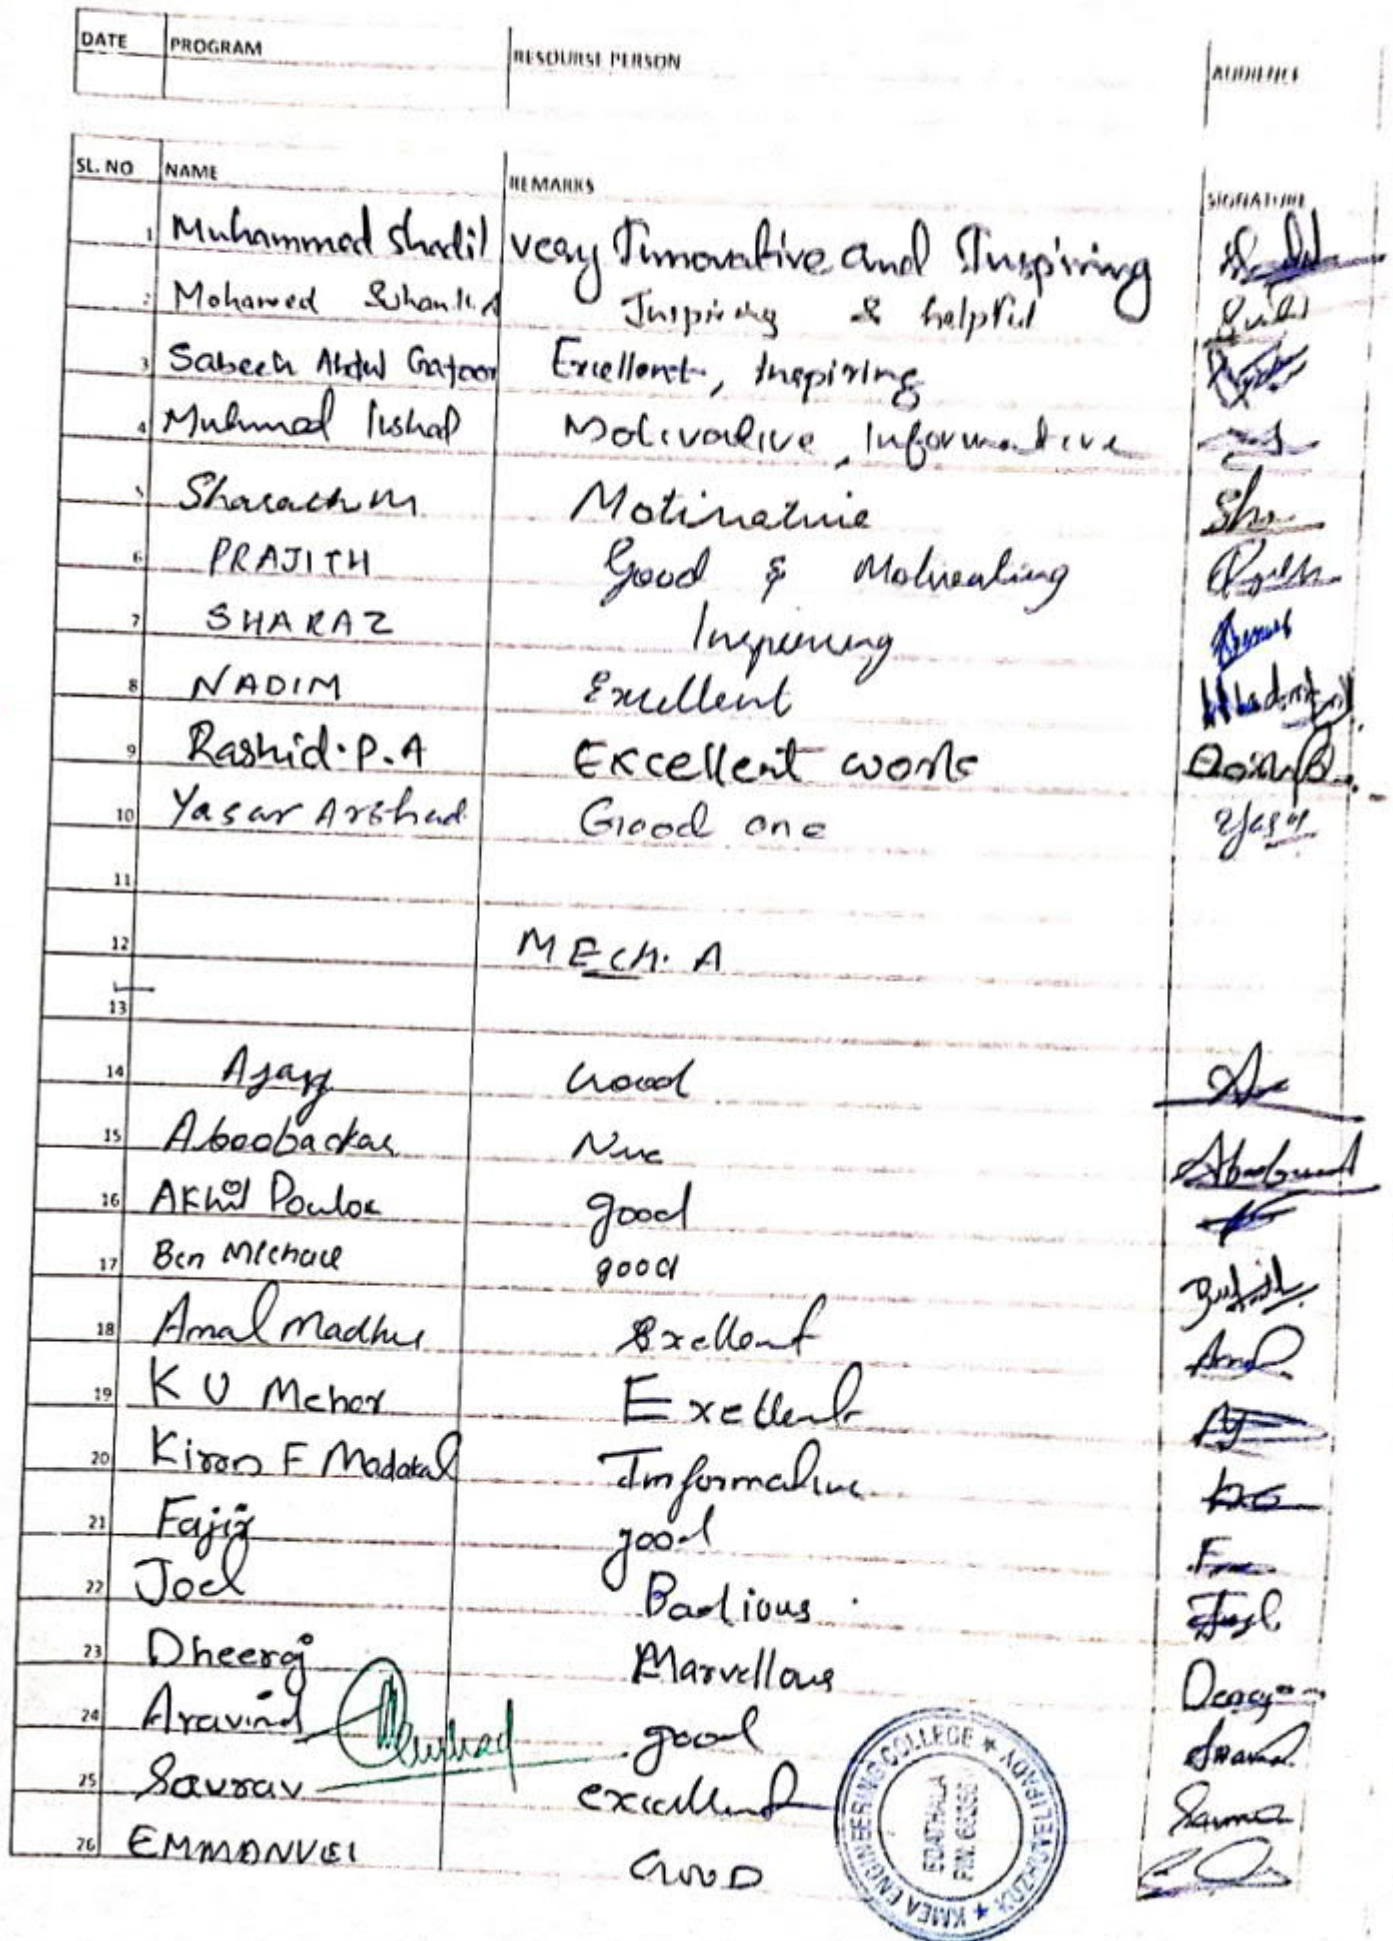 DATE PROGRAM RESOURSE PERSON AUDIENCE
SL. NO NAME REMARKS SIGNATURE
1 Muhammed Shadil very Innovative and Inspiring
2 Mohamed Inspiring & helpful
3 Sabeeh Abdul Gafoor Excellent, Inspiring
4 Muhmad Irshad Motivative, Informative
5 Sharath M Motivative Sha
6 PRAJITH Good & Motiveating
7 SHARAZ Inspiring
8 NADIM Excellent
9 Rashid.P.A Excellent work
10 Yasar Arshad Good one Yasar
11
12 MECH. A
13
14 Ajay Good
15 Aboobackar Nice
16 Akhil Poulose good
17 Ben Michael good
18 Amal Madhu Excellent Amal
19 K U Mehar Exellent
20 Kiran F Madakal Informative
21 Fajiz good
22 Joel Joel
23 Dheeraj Marvellous
24 Aravind good
25 Saurav excellent
26 EMMANUEL GOOD
KMEA ENGINEERING COLLEGE ★ KUZHIVELIPADY ★
EDATHALA
PIN. 683561